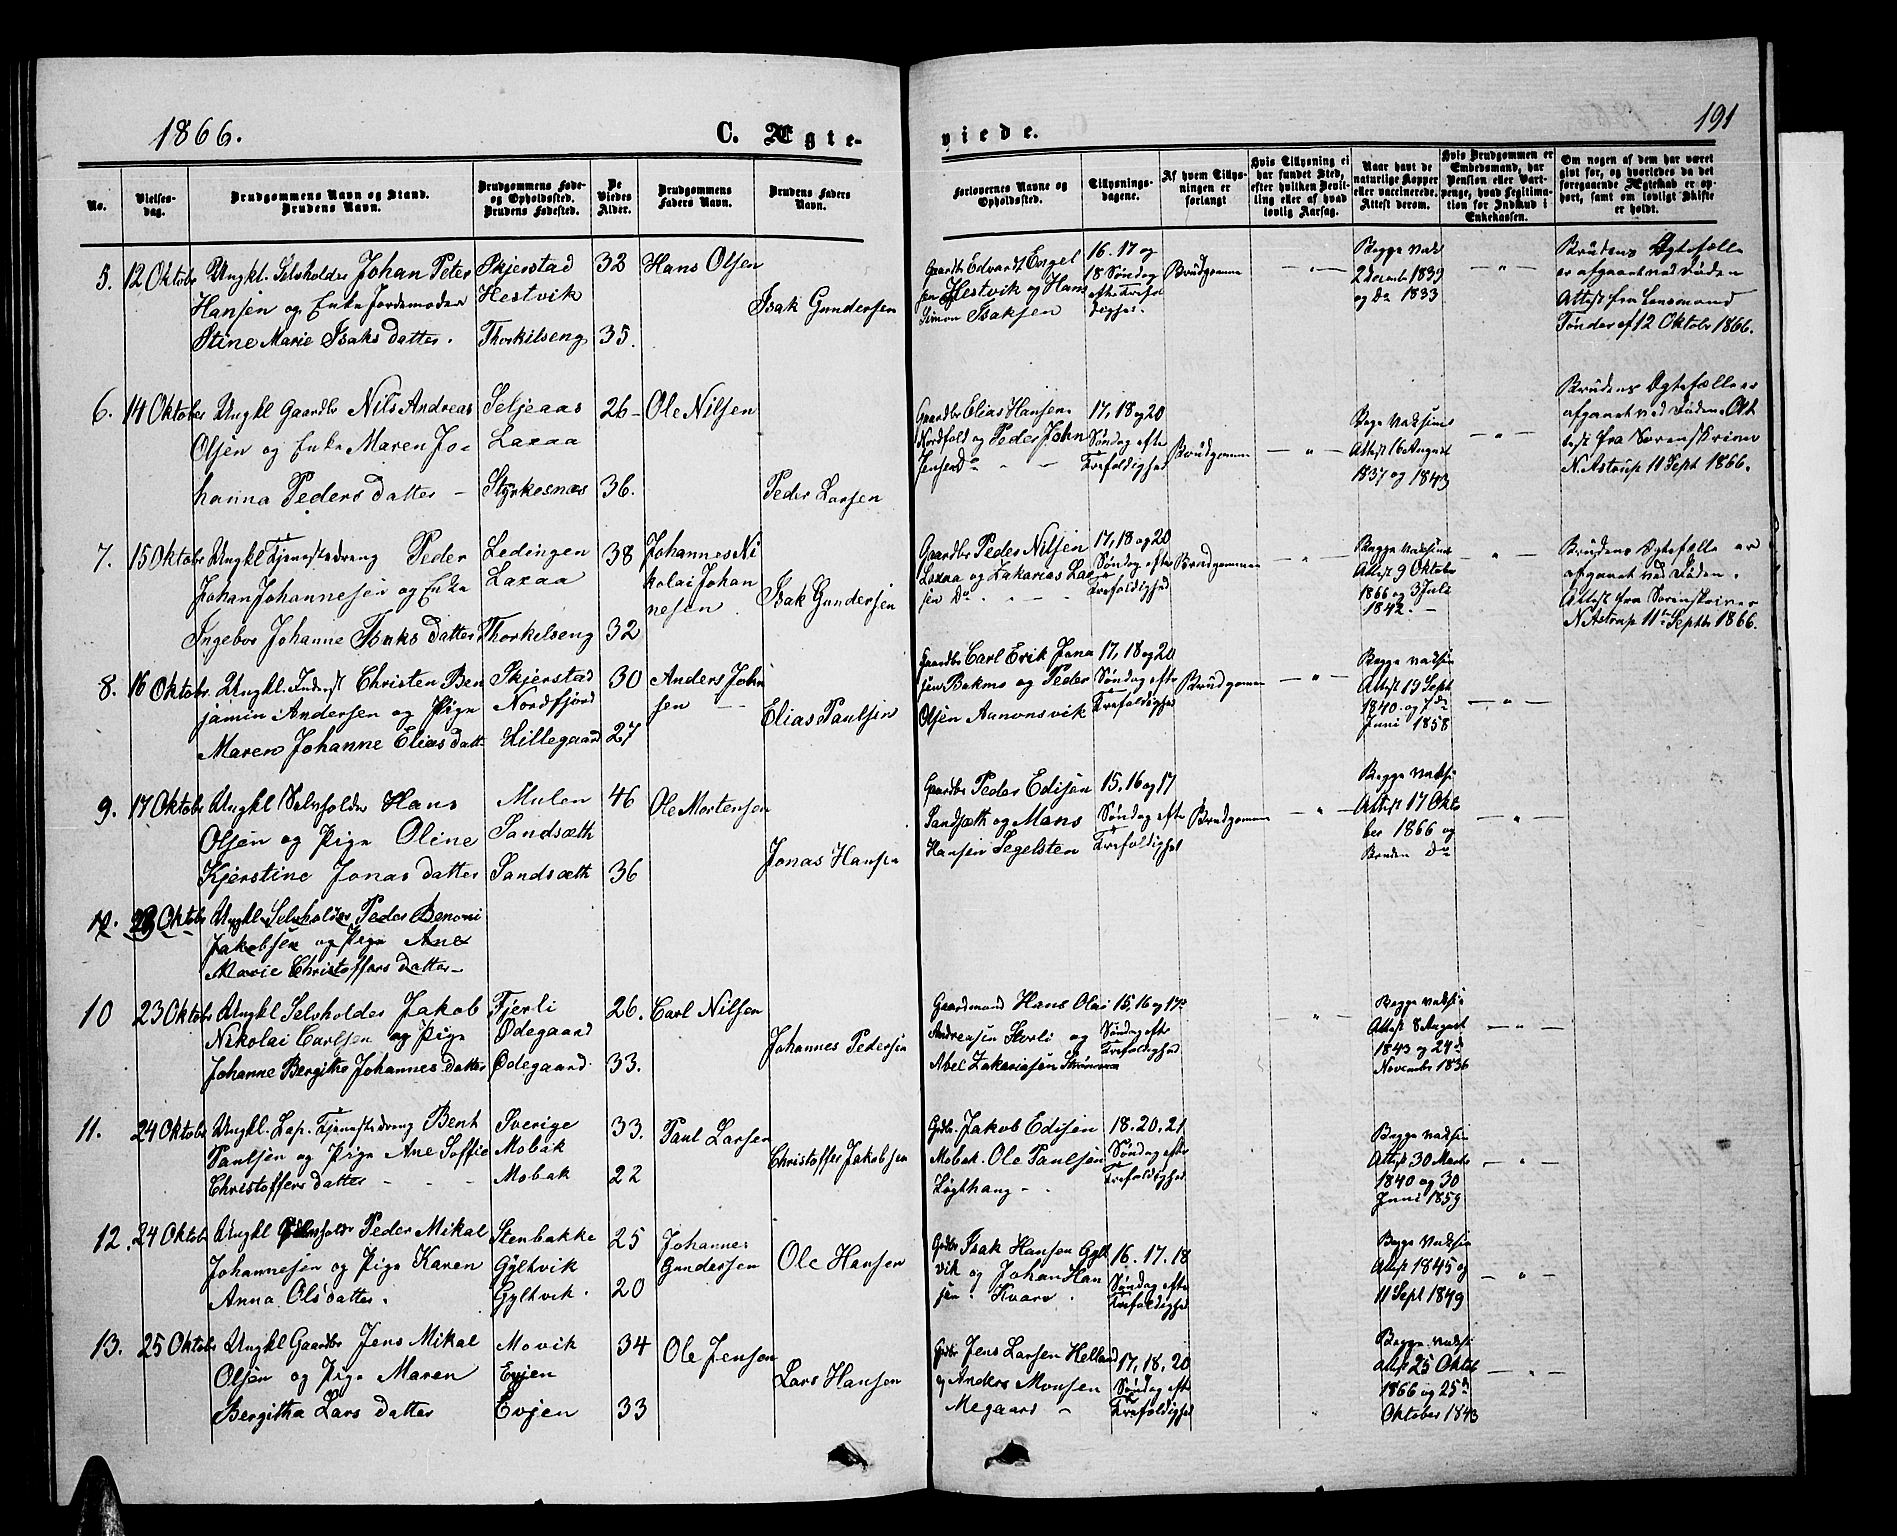 1866.
C. Ægte-
viede.
191
No.
Vielses-
dag.
Brudgommens Navn og Stand.
Brudens Navn.
Brudgommens Føde-
og Opholdssted.
Brudens Fødested.
De
Viedes
Alder.
Brudgommens
Faders Navn.
Brudens Faders
Navn.
Forlovernes Navne og
Opholdssted.
Tillysnings-
dagene.
Af hvem Tillys-
ningen er
forlangt
Hvis Tillysning ei
har fundet Sted,
efter hvilken Bevil-
ling eller af hvad
lovlig Aarsag.
Naar havt de
naturlige Kopper
eller vaccinerede.
Attest derom.
Hvis Brudgommen er
Embedsmand, har
Pension eller Vart-
penge, hvad Legitima-
tion for Indskud i
Enkekassen.
Om nogen af dem har været
givt før, og hvorledes da det
foregaaende Ægteskab er op-
hørt, samt om lovligt Skifte
er holdt.
5. 12 Oktobr Ungkl. Selvholder Johan Peter Skjerstad 32 Hans Olsen
Hansen og Enke Jordemoder Hestvik Isak Gundersen
Stine Marie Isaks datter. Thorkilseng 35.
Gaardb Edvardt Engel
sen Hestvik og Hans
Simon Isaksen
16. 17 og
18 Søndag
efter Trefol
dighed.
Brudgommen
Begge vaks
2 Decemb 1839
og Do 1833
Brudens Ægtefælle
er afgaaet ved Døden
Attest fra Lensmand
Tønder af 12 Oktobr 1866.
6. 14 Oktober Ungkl Gaardbr Nils Andreas Seljeaas 26 Ole Nilsen
Olsen og Enke Maren Jo- Laxaa
hanna Peders datter Styrkesnæs 36. Peder Larsen
Gaardbr Elias Hansen
Nordfold og Peder John
sen Do
17, 18 og 20
Søndag efter
Trefoldighed
Brudgommen
Bege vaksine
Attest 16 August
1837 og 1843
Brudens Ægtefælle er
afgaaet ved Døden. At
test fra Sorenskriver
N. Astrup 11 Sept 1866.
7. 15 Oktobr Ungkl Tjenestedreng Peder Lødingen 38 Johannes Ni
Johan Johannesen og Enke Laxaa kolai Johan
nesen Isak Gundersen
Ingebor Johanne Isaks datter Thorkelseng 32
Gaardbr Peder Nilsen
Laxaa og Zakarias Lar
sen Do
17, 18 og 20
Søndag efter
Trefoldighed
Brudgommen
Begge vaksine
Attest 9 Oktober
1866 og 3 Juli
1842.
Brudens Ægtefælle er
afgaaet ved Døden.
Attest fra Sorenskriver
N. Astrup 11te Septbr 1866.
8. 16 Oktobr. Ungkl. Inderst Christen Ben Skjerstad 30 Anders John
jamin Andersen og Pige Nordfjord sen Elias Paulsen
Maren Johanne Elias datt Lillegaard 27
Gaardbr Carl Erik Jona
sen Bakmo og Peder
Olsen Aanonsvik
17, 18 og 20
Søndag efter
Trefoldighed
Brudgommen
Begge vaksin
Attest 19 Sept
1840 og 7de
Juni 1858
9. 17 Oktobr Ungkl Selvholder Hans Mulen 46 Ole Mortensen
Olsen og Pige Oline Sandsæth
Kjerstine Jonas datter Sandsæth 36 Jonas Hansen
Gaardbr Peder Edisen
Sandsæth og Mons
Hansen Segelsten
15, 16 og 17
Søndag efter
Trefoldighed
Brudgommen
Begge vaksi
Attest 17 Okto
ber 1866 og
Bruden do
10. 23 Oktobr Ungkl Selvholder Peder Benoni
Jakobsen og Pige Ane
Marie Christoffers datter
10 23 Oktobr Ungkl Selvholder Jakob Fjerli 26. Carl Nilsen
Nikolai Carlsen og Pige Ødegaard Johannes Pedersen
Johanne Bergithe Johannes datter Ødegaard 33.
Gaardmand Hans Olai
Andreasen Storli og
Abel Zakariasen
15, 16 og 17de
Søndag efter
Trefoldighed
Begge vaksi
Attest 8 August
1843 og 24de
November 1836
11. 24 Oktobr Ungkl. Lap. Tjenestedreng Bent Sverige 33. Paul Larsen
Paulsen og Pige Ane Soffie Mobak Christoffer Jakobsen
Christoffers datter Mobak 22
Grdbr. Jakob Edisen
Mobak. Ole Paulsen
Løgthaug
18. 20. 21
Søndag efter
Trefoldighed
Begge vaksin
Attest 30 Marts
1840 og 30
Juni 1859
12. 24 Oktobr Ungkl Selvholdr Peder Mikal Stenbakke 25 Johannes
Johannesen og Pige Karen Gyltvik Gundersen Ole Hansen
Anna Olsdatter. Gyltvik. 20
Grdbr Isak Hansen Gylt
vik og Johan Han
sen Kvarv
16. 17. 18
Søndag efter
Trefoldighed
Begge vaksin
Attest 1845 og
11 Sept 1849
13. 25 Oktobr Ungkl Gaardbr Jens Mikal Movik 34 Ole Jensen
Olsen og Pige Maren Evjen Lars Hansen
Bergitha Lars datter Evjen 33
Grdbr Jens Larsen Helland
og Anders Monsen
Megaard
17, 18, 20
Søndag efter
Trefoldighed
Begge vaksi
Attest 25 Oktob
1866 og 25de
Oktober 1843